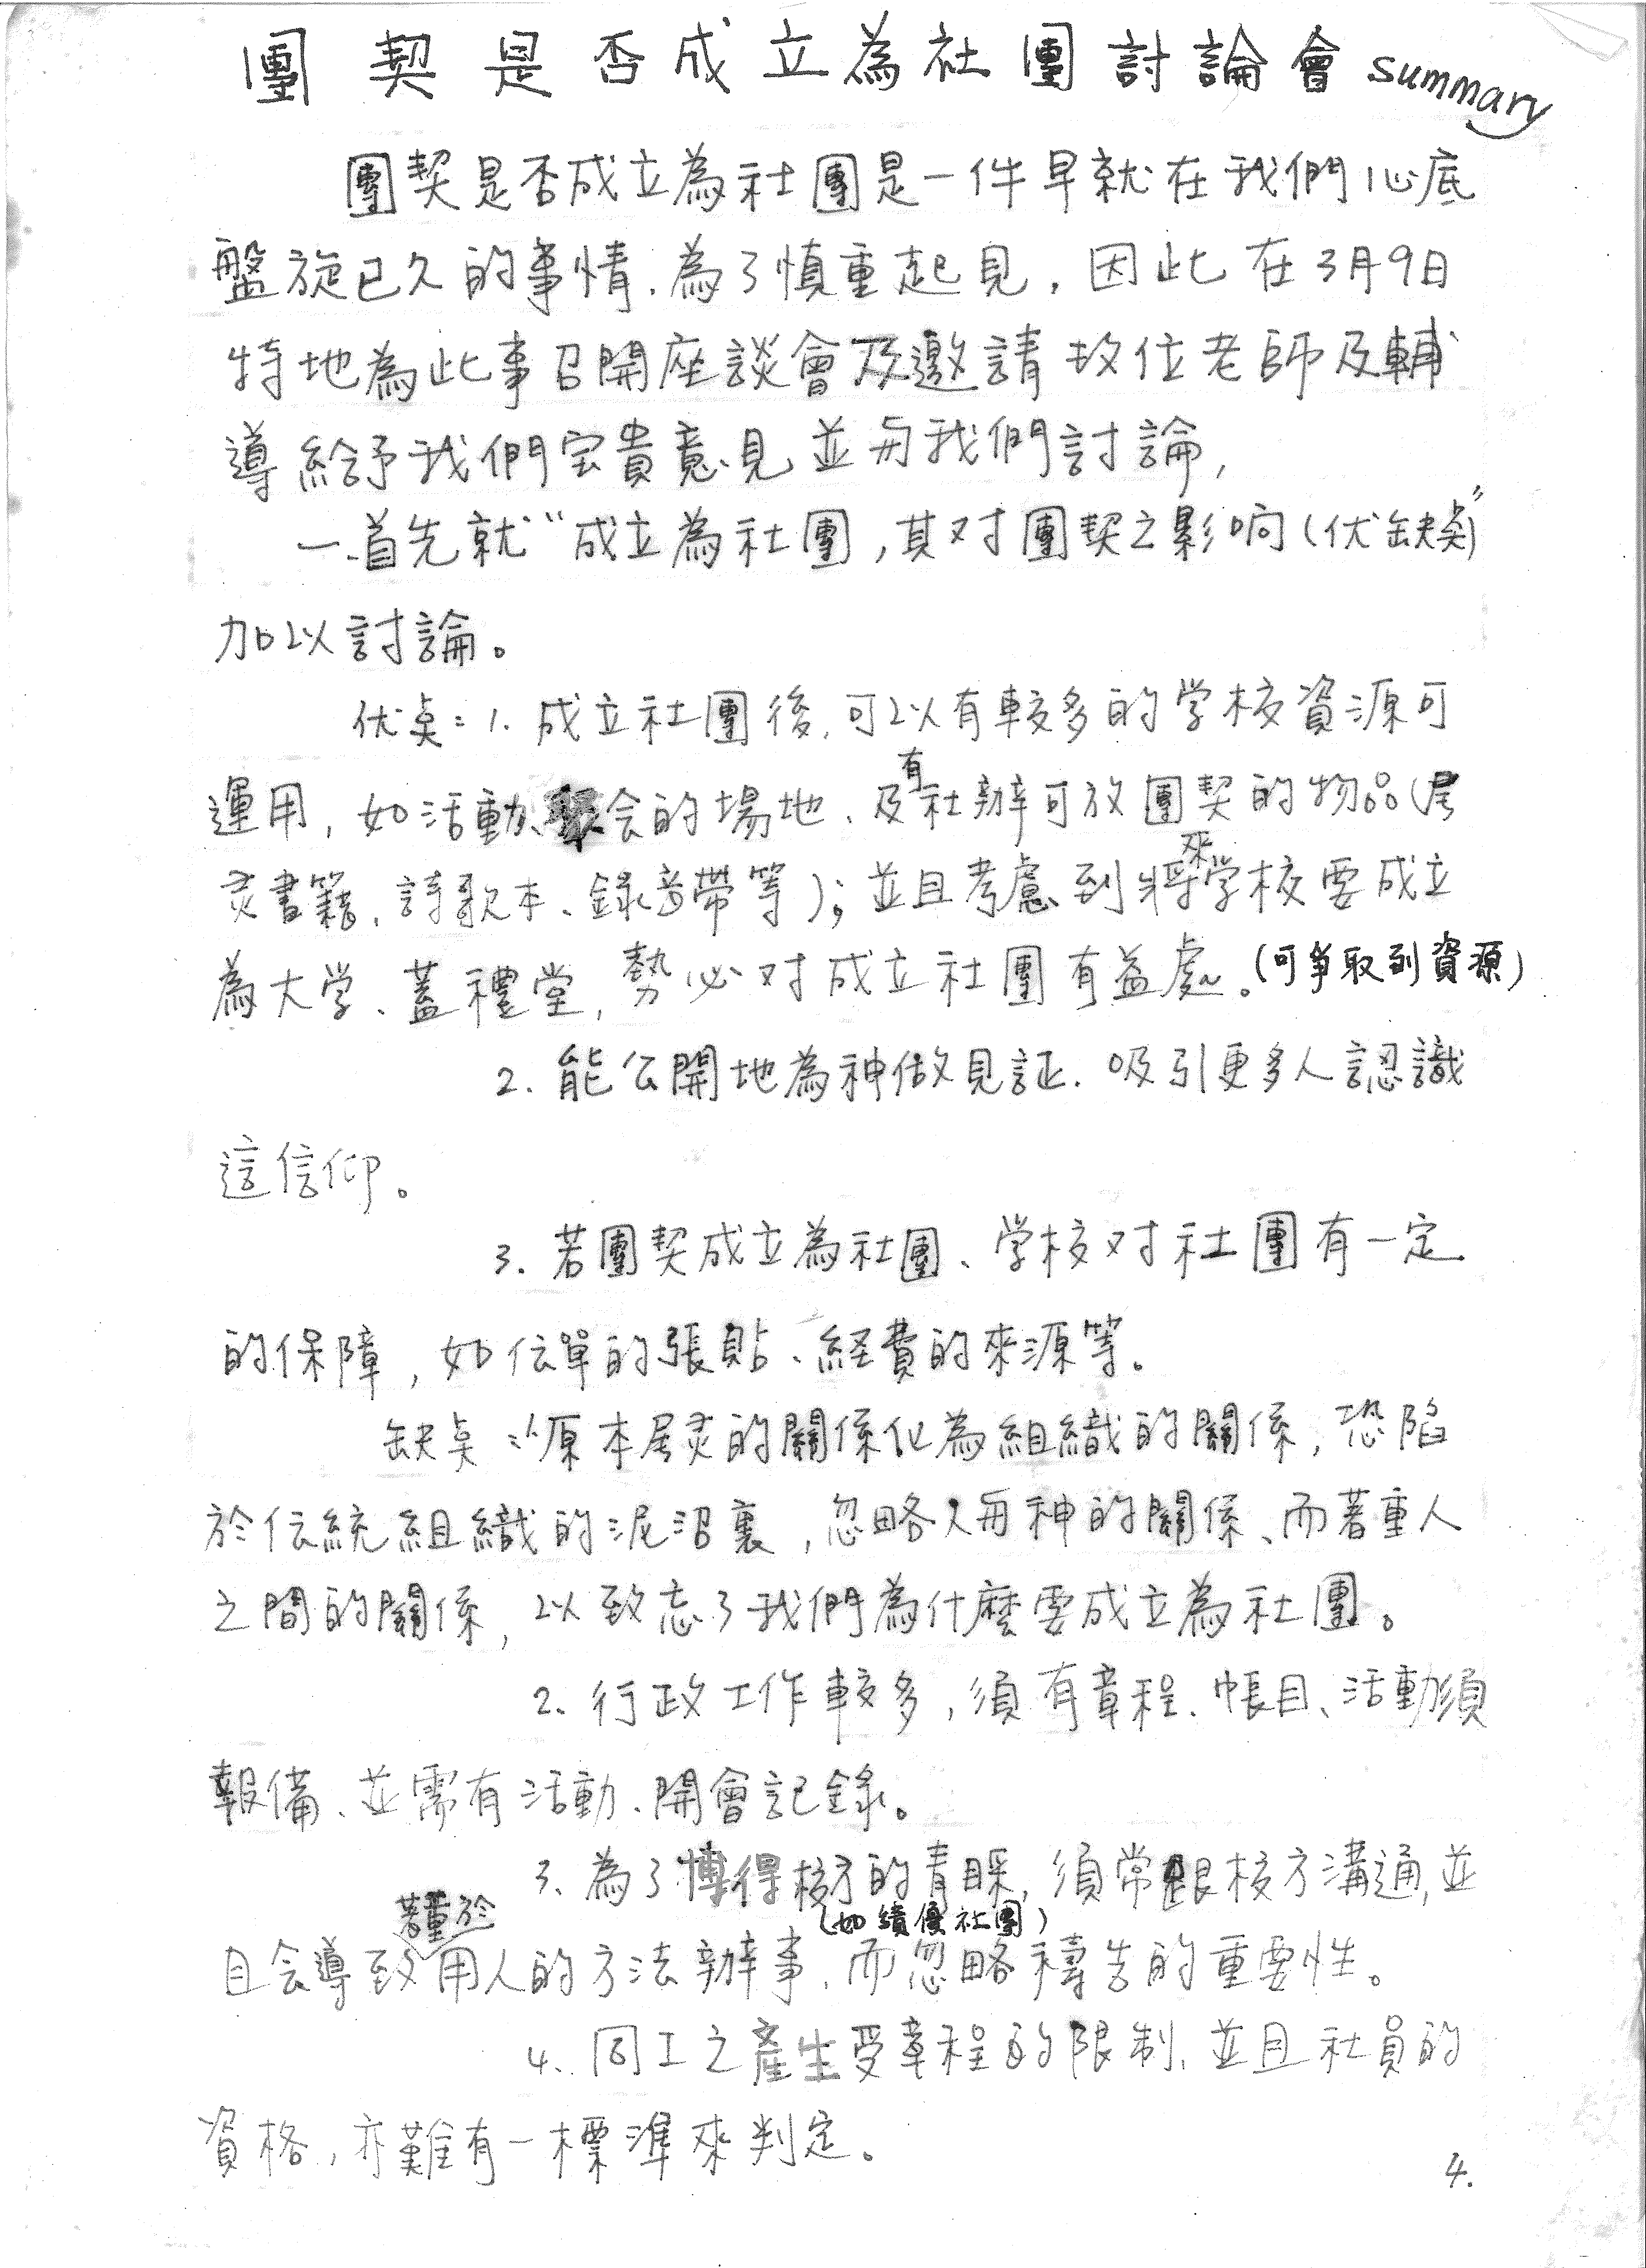 團契是否成立為社團討論會 summary
團契是否成立為社團是一件早就在我們心底
盤旋已久的事情、為了慎重起見，因此在3月9日
特地為此事召開座談會及邀請牧位老師及輔
導給予我們宝貴意見並与我們討論，
一、首先就“成立為社團，其对團契之影响(优缺点)”
加以討論。
优点：1. 成立社團後，可以有較多的学校資源可
運用，如活動、聚会的場地、及有社辦可放團契的物品(屬
灵書籍、詩歌本、錄音帶等)；並且考慮到將來学校要成立
為大学、蓋禮堂，勢必对成立社團有益處。(可爭取到資源)
2. 能公開地為神做見証、吸引更多人認識
這信仰。
3. 若團契成立為社團、学校对社團有一定
的保障，如伝單的張貼、経費的來源等。
缺点：1.原本屬灵的關係化為組織的關係，恐陷
於伝統組織的泥沼裏，忽略人与神的關係、而著重人
之間的關係，以致忘了我們為什麼要成立為社團。
2. 行政工作較多，須有章程、帳目、活動須
報備、並需有活動、開會記錄。
3. 為了博得校方的青睬，須常跟校方溝通，並
且会導致著重於用人的方法辦事、(如績優社團)而忽略禱告的重要性。
4. 同工之產生受章程的限制、並且社員的
資格，亦難有一標準來判定。
4.